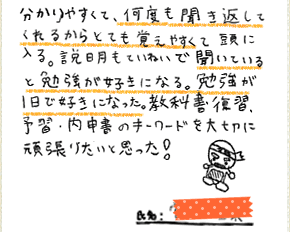 分かりやすくて、何度も聞き返して
くれるからとても覚えやすくて頭に
入る。説明もていねいで聞いている
と勉強が好きになる。勉強が
1日で好きになった。教科書復習、
予習・内申書のキーワードを大切に
頑張りたいと思った!
氏名: